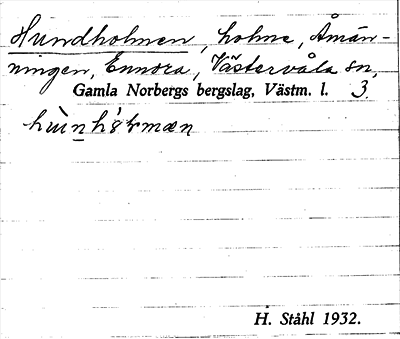 Hundholmen, holme, Åmän-
ningen, Ennora, Västervåla sn,
Gamla Norbergs bergslag, Västm. l. 3
H. Ståhl 1932.